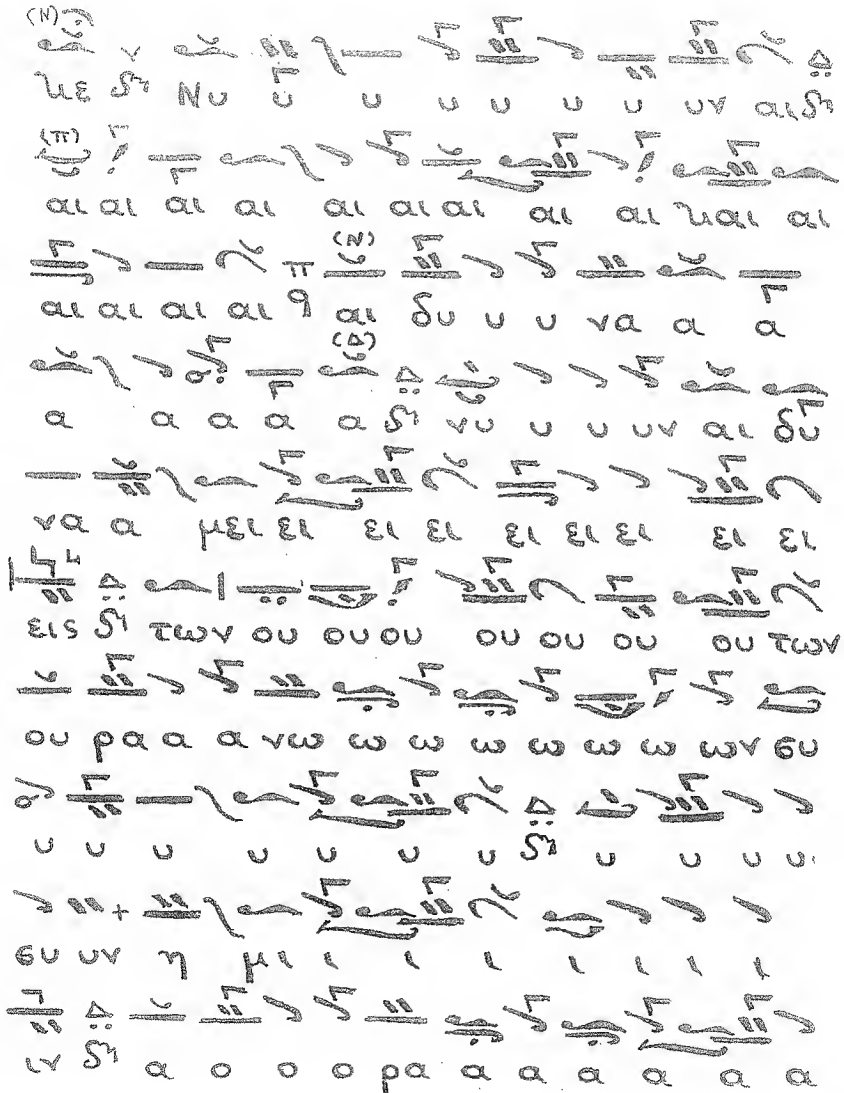 (Ν)
κε δη Νυ υ υ υ υ υ υ υν αι Δ δη
(π)
αι αι αι αι αι αι αι αι αι και αι
(Ν)
αι αι αι αι π q αι δυ υ υ να α α
(Δ)
α α α α α Δ δη νυ υ υ υν αι δυ
να α μει ει ει ει ει ει ει ει ει
εις Δ δη των ου ου ου ου ου ου ου των
ου ρα α α νω ω ω ω ω ω ω ων συ
υ υ υ υ υ υ υ Δ δη υ υ υ υ
συ υν η μι ι ι ι ι ι ι ι
ιν Δ δη α ο ο ο ρα α α α α α α